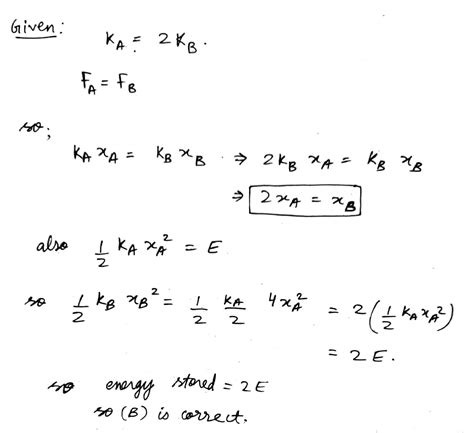 Given: K_A = 2K_B.
F_A = F_B
so;
K_A x_A = K_B x_B. ⇒ 2K_B x_A = K_B x_B
⇒ 2x_A = x_B
also 1/2 K_A x_A² = E
so 1/2 K_B x_B² = 1/2 K_A/2 4x_A² = 2(1/2 K_A x_A²)
= 2E.
so energy stored = 2E
so (B) is correct.